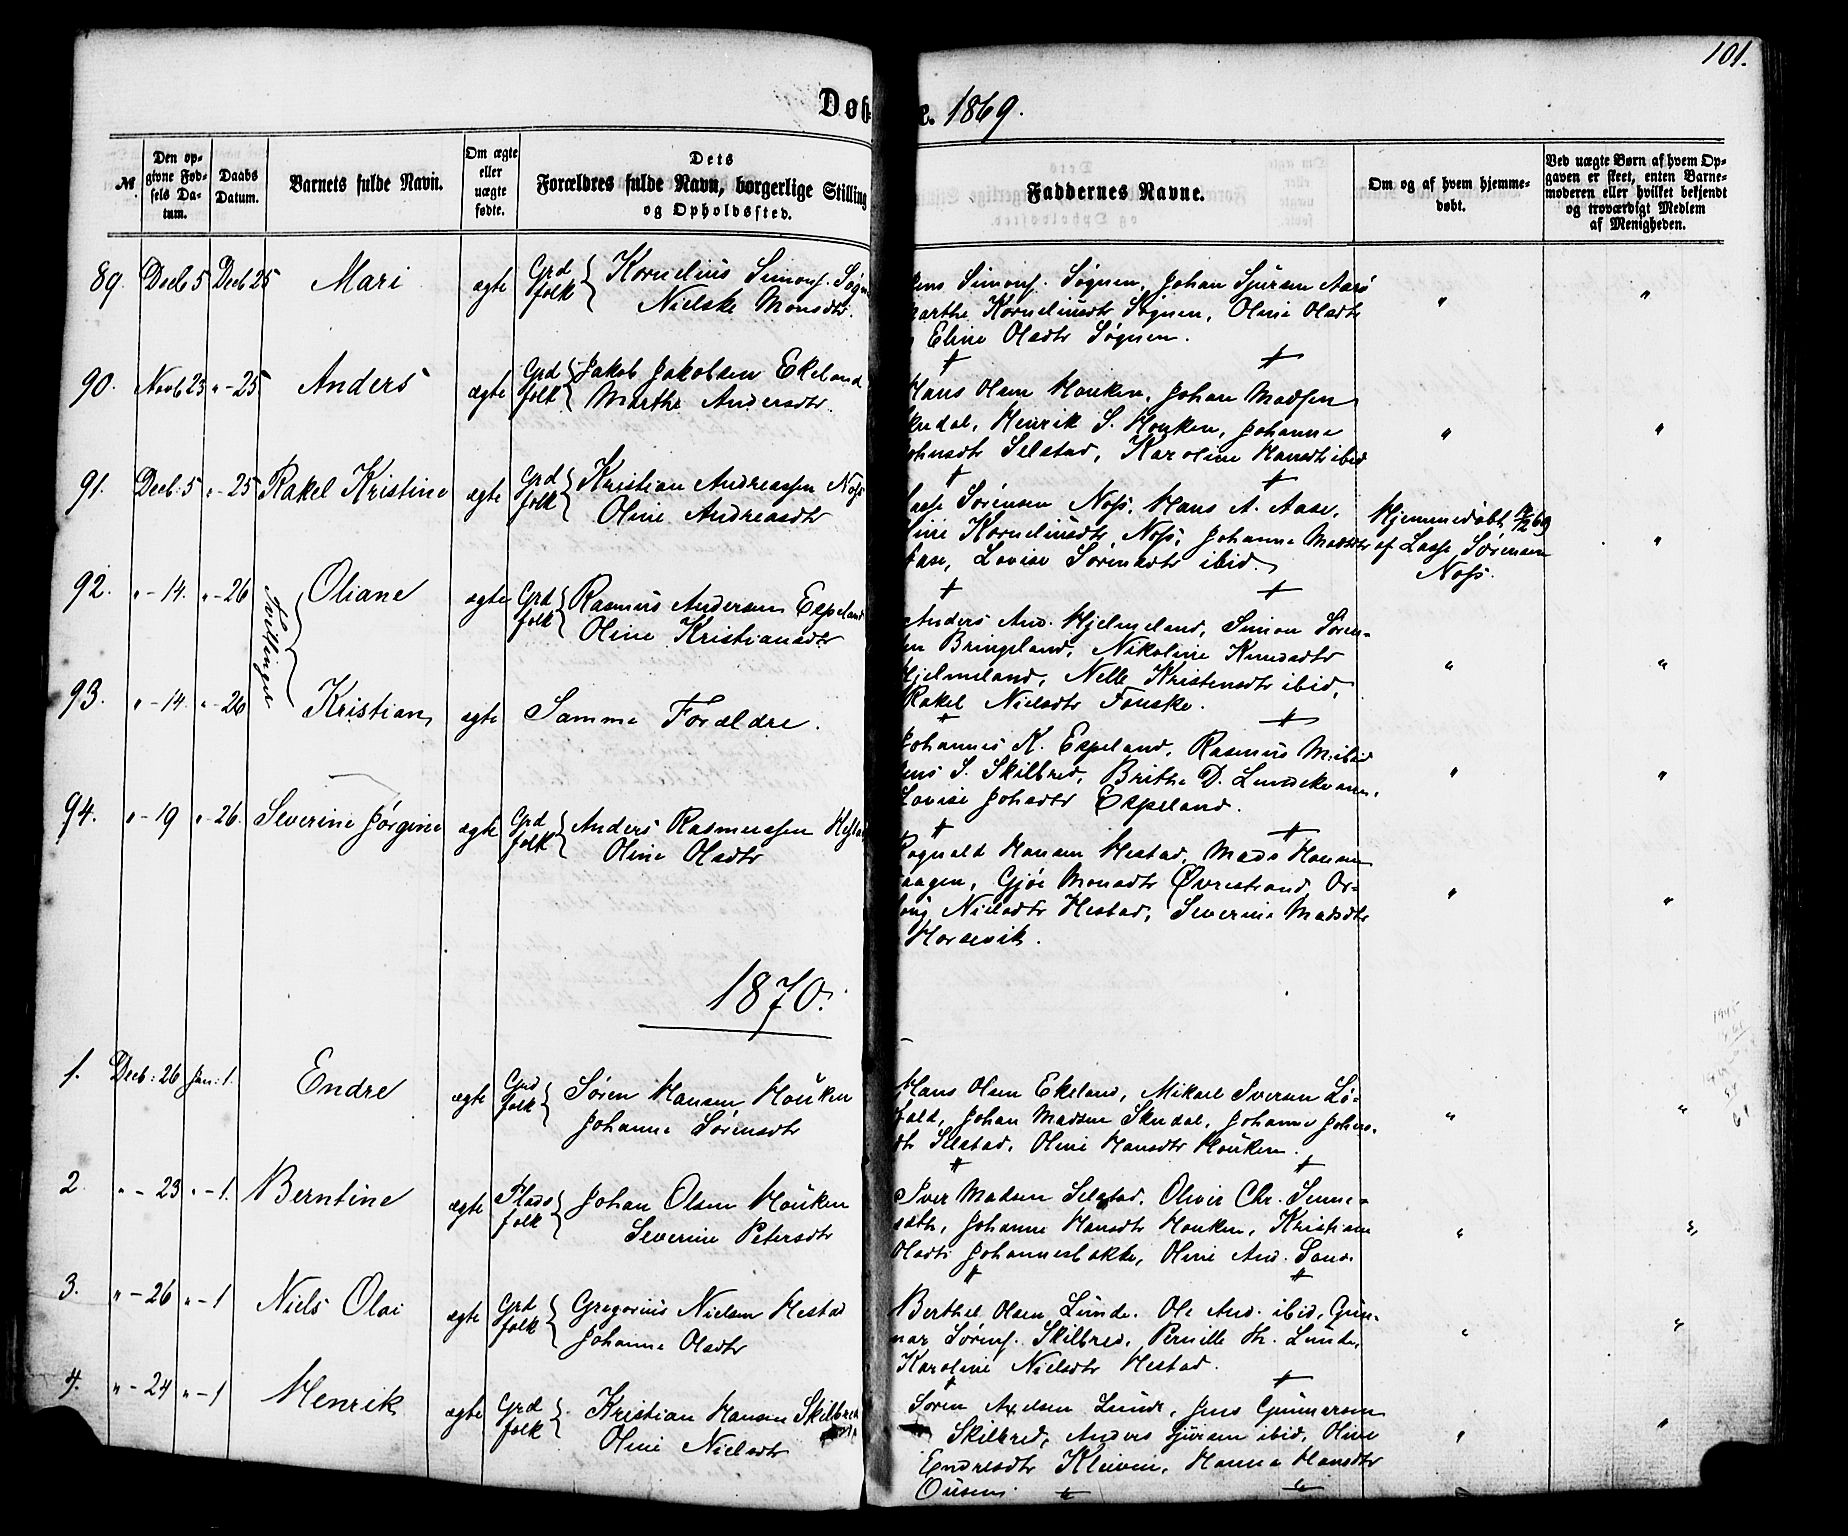 101.
Døb
e. 1869.
№
Den opgivne Fødsels Datum.
Daabs Datum.
Barnets fulde Navn.
Om ægte eller uægte fødte.
Dets Forældres fulde Navn, borgerlige Stilling og Opholdssted.
Faddernes Navne.
Om og af hvem hjemmedøbt.
Ved uægte Børn af hvem Opgaven er skeet, enten Barnemoderen eller hvilket bekjendt og troværdigt Medlem af Menigheden.
89. Decb 5 Decb 25 Mari ægte Grd folk { Kornelius Simons. Søgn
Nielske Monsdtr.
Simons. Søgnen, Johan Sjursen Aase
Marthe Korneliusdtr Søgnen, Oline Olsdtr
Eline Olsdtr Søgnen.
90. Novb 23 " - 25. Anders ægte Grd folk { Jakob Jakobsen Ekeland
Marthe Andersdtr.
Hans Olsen Houken, Johan Madsen
Skudal, Henrik S. Houken, Johanne
Johnsdtr Selstad, Karoline Hansdtr ibid
91. Decb: 5 " - 25 Rakel Kristine ægte Grd folk { Kristian Andreassen Nøss
Oline Andreasdtr
Lasse Sørensen Nøss, Hans A. Aase,
Oline Korneliusdtr Nøss, Johanne Madsdtr
Aase, Lovise Sørensdtr ibid.
Hjemmedøbt 69
af Lasse Sørensen
Nøss.
92. " - 14. " - 26 Oliane ægte Grd folk { Rasmus Andersen Espeland
Oline Kristiansdtr
Tvillinger
Anders And. Hjelmeland, Simon Søren-
sen Bringeland, Nikoline Knudsdtr
Hjelmeland, Nelle Kristensdtr ibid,
Rakel Nielsdtr Fauske.
93. " - 14. " - 26 Kristian ægte Samme Forældre.
Johannes K. Espeland, Rasmus M. ibid
Jens S. Skilbred, Brithe D. Lundekvam,
Lovise Johsdtr Espeland.
94. " - 19 " - 26. Severine Jørgine ægte Grd folk { Anders Rasmussen Hestad
Oline Olsdtr
Rognald Hansen Hestad, Mads Hansen
Haagen, Gjøe Monsdtr Øvrestrand, Or-
Nielsdtr Hestad, Severine Madsdtr
Horsevik.
1870.
1. Decb: 26 Jan: 1. Endre ægte Grd folk { Søren Hansen Houken
Johanne Sørensdtr
Hans Olsen Ekeland, Mikael Iversen Lø-
fald, Johan Madsen Skudal, Johanne Johns-
dtr Selstad, Oline Hansdtr Houken.
2. " - 23 " - 1. Berntine ægte Plads folk { Johan Olsen Houken
Severine Petersdtr
Iver Madsen Selstad, Oliver Chr. Sunne-
sæth, Johanne Hansdtr Houken, Kristiane
Olsdtr Johannesbakke, Oline And. Sand.
3. " - 26 " - 1 Niels Olai ægte Grd folk { Gregorius Nielsen Hestad
Johanne Olsdtr
Berthel Olsen Lunde, Ole And. ibid, Gun-
nar Sørens. Skilbred, Pernille Th. Lunde,
Karoline Nielsdtr Hestad.
4. " - 24 " - 1 Henrik ægte Grd folk { Kristian Hansen Skilbred
Oline Nielsdtr
Søren Axelsen Lunde, Jens Gunnarsen
Skilbred, Anders Sjursen ibid, Oline
Endresdtr Kleiven, Hanna Hansdtr
Ousen.